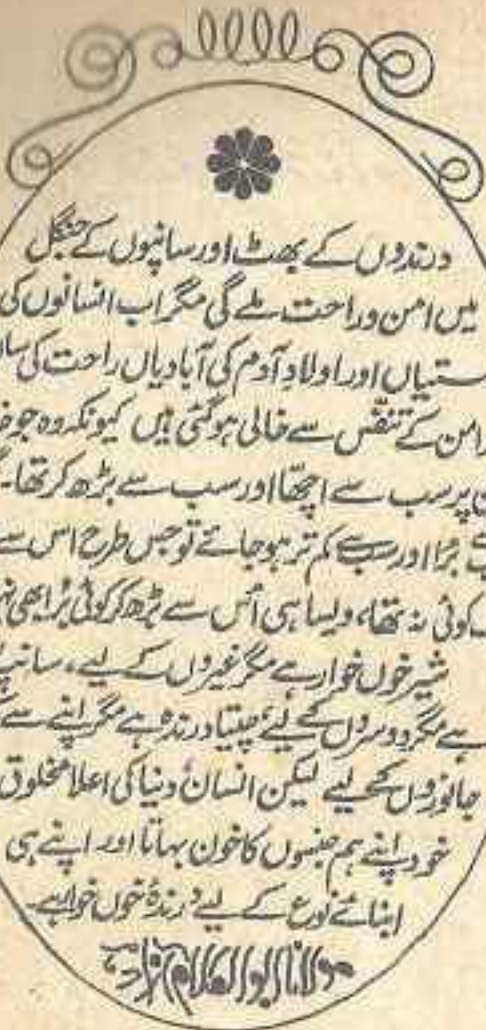 درندوں کے بھٹ اور سانپوں کے جنگل
میں امن و راحت ملے گی مگر اب انسانوں کی
بستیاں اور اولادِ آدم کی آبادیاں راحت کی
امن کے تنفّس سے خالی ہوگئی ہیں کیونکہ وہ جو
پر سب سے اچھّا اور سب سے بڑھ کر تھا۔
بُرا اور سب سے کم تر ہوجائے تو جس طرح اس سے
کوئی نہ تھا، ویسا ہی اُس سے بڑھ کر کوئی بُرا بھی
شیر خوں خوار ہے مگر غیروں کے لیے، سانپ
ہے مگر دوسروں کے لیے، چیتا درندہ ہے مگر اپنے سے
جانوروں کے لیے لیکن انسان دنیا کی اعلا مخلوق
خود اپنے ہم جنسوں کا خون بہاتا اور اپنے ہی
ابنائے نوع کے لیے درندۂ خوں خوار ہے۔
مولانا ابوالکلام آزاد